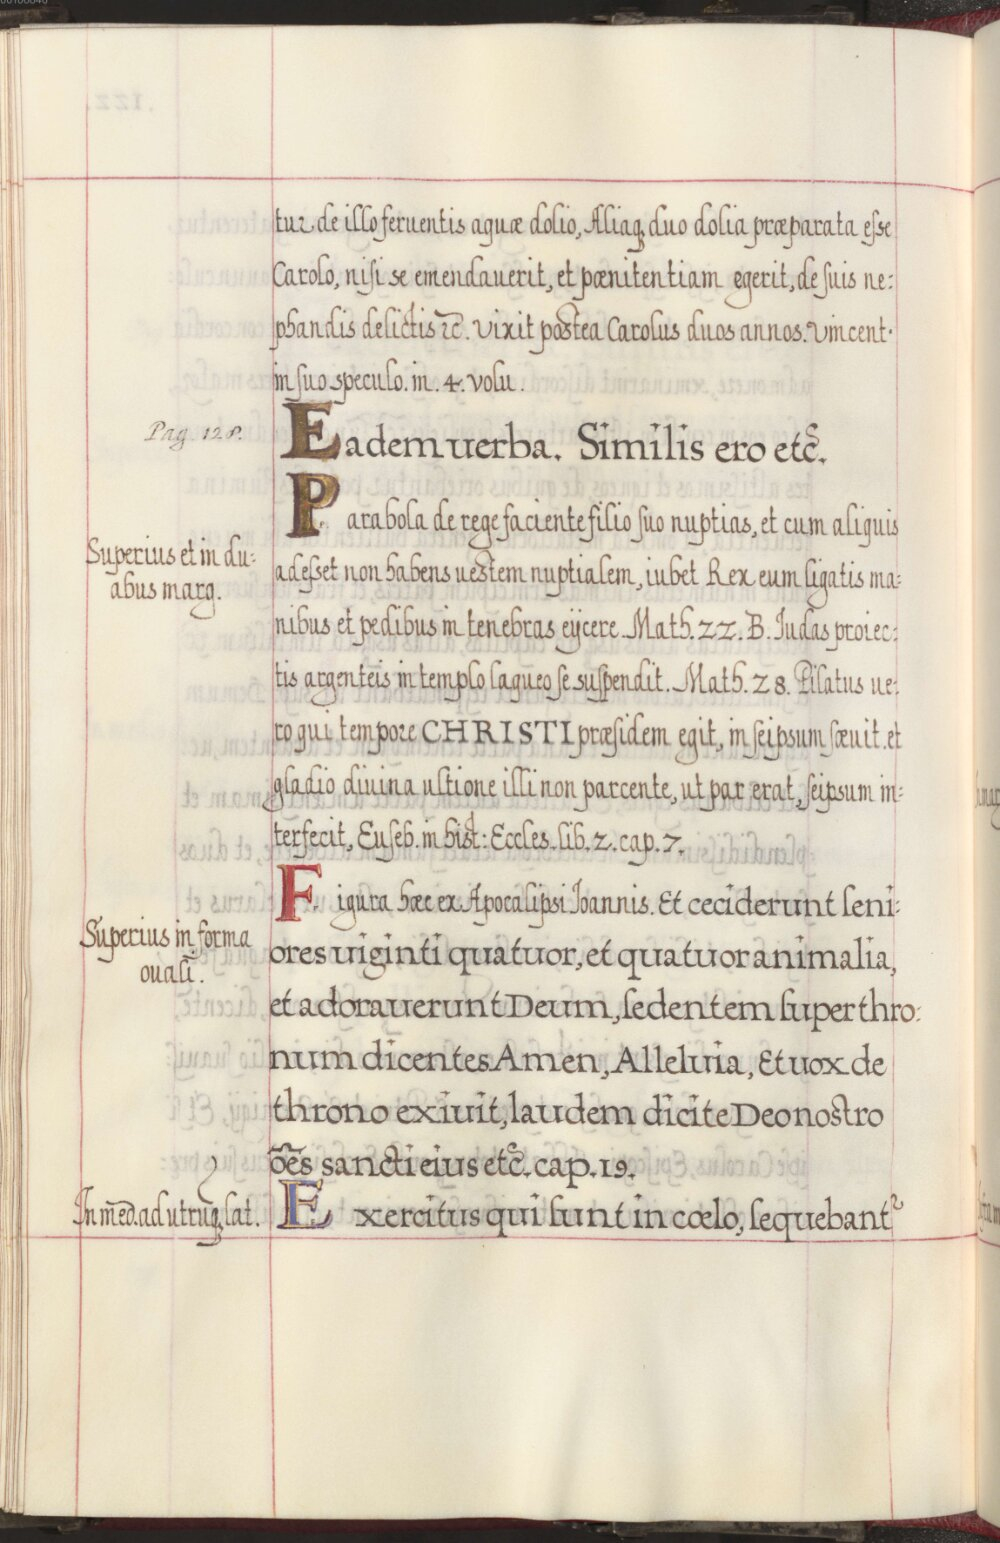 tur de illo feruentis aquæ dolio, Aliaq; duo dolia præparata eſse
Carolo, niſi se emendauerit, et pænitentiam egerit, de ſuis ne:
phandis delictis ⁊c̄. Vixit postea Carolus duos annos. Vincent.
in ſuo speculo. in .4. volu.
Pag 128.
Eadem uerba. Similis ero etc̄.
Superius et in du:
abus marg.
Parabola de rege faciente filio ſuo nuptias, et cum aliquis
adeſset non habens uestem nuptialem, iubet Rex eum ligatis ma:
nibus et pedibus in tenebras eijcere. Math. 22. B. Iudas proiec:
tis argenteis in templo laqueo ſe suſpendit. Math. 28. Pilatus ue:
ro qui tempore CHRISTI præſidem egit, in ſeipsum ſæuit. et
gladio diuina ultione illi non parcente, ut par erat, ſeipsum in:
terfecit, Euſeb. in hist: Eccles. lib. 2. cap. 7.
Superius in forma
ouali.
Figura hæc ex Apocalipsi Ioannis. Et ceciderunt ſeni:
ores uiginti quatuor, et quatuor animalia,
et adorauerunt Deum, ſedentem ſuper thro:
num dicentes Amen, Alleluia, Et uox de
throno exiuit, laudem dicite Deo nostro
oēs sancti eius etc̄. cap. 19.
In med. ad utruq; lat.
Exercitus qui ſunt in cœlo, ſequebant᷑